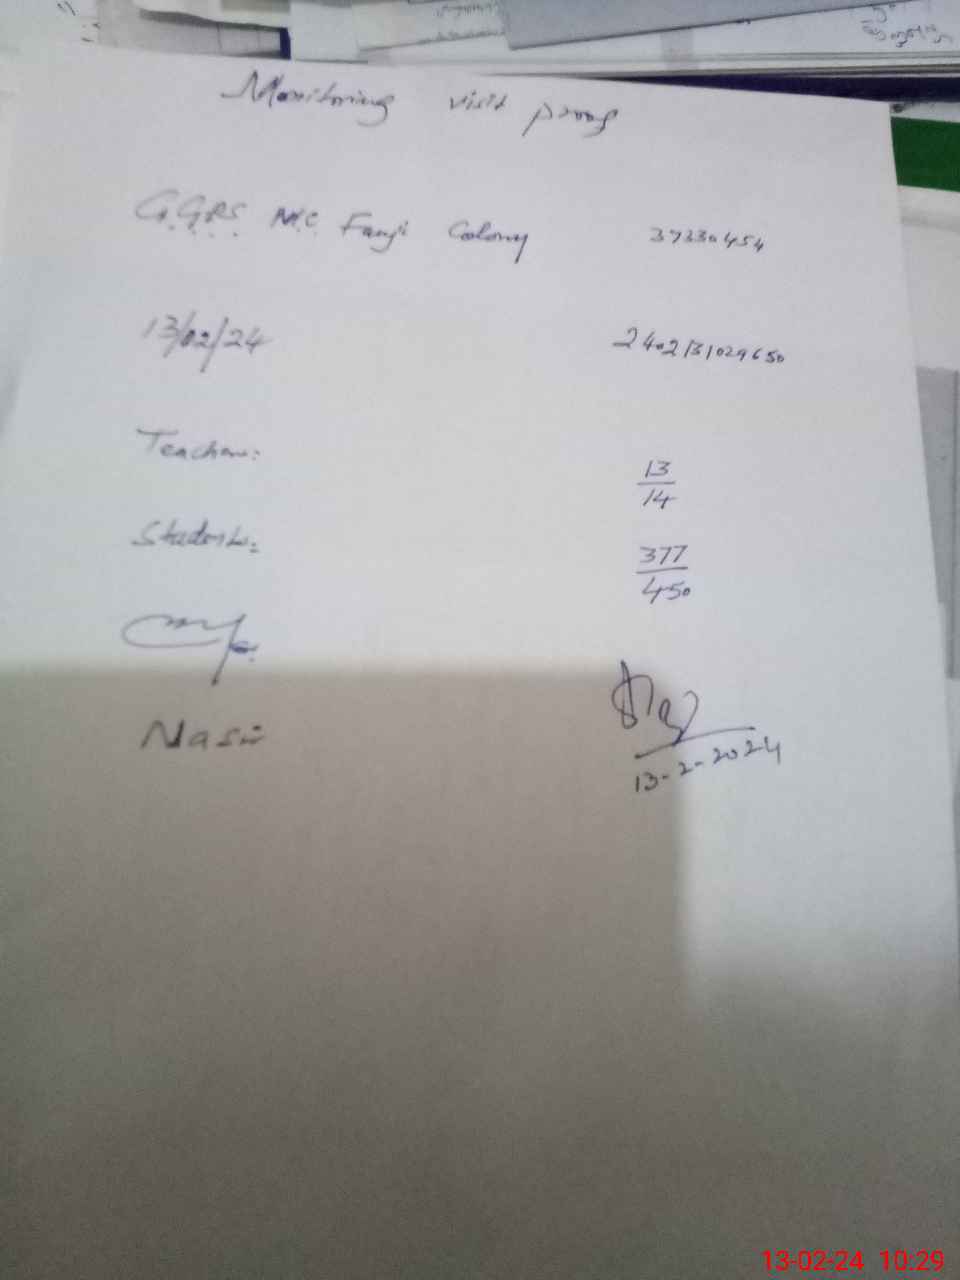 Monitoring visit proof
G.G.P.S M.C. Fauji Colony 37330454
13/02/24 2402131029650
Teachers: 13/14
Students: 377/450
Nasir
13-2-2024
13-02-24 10:29